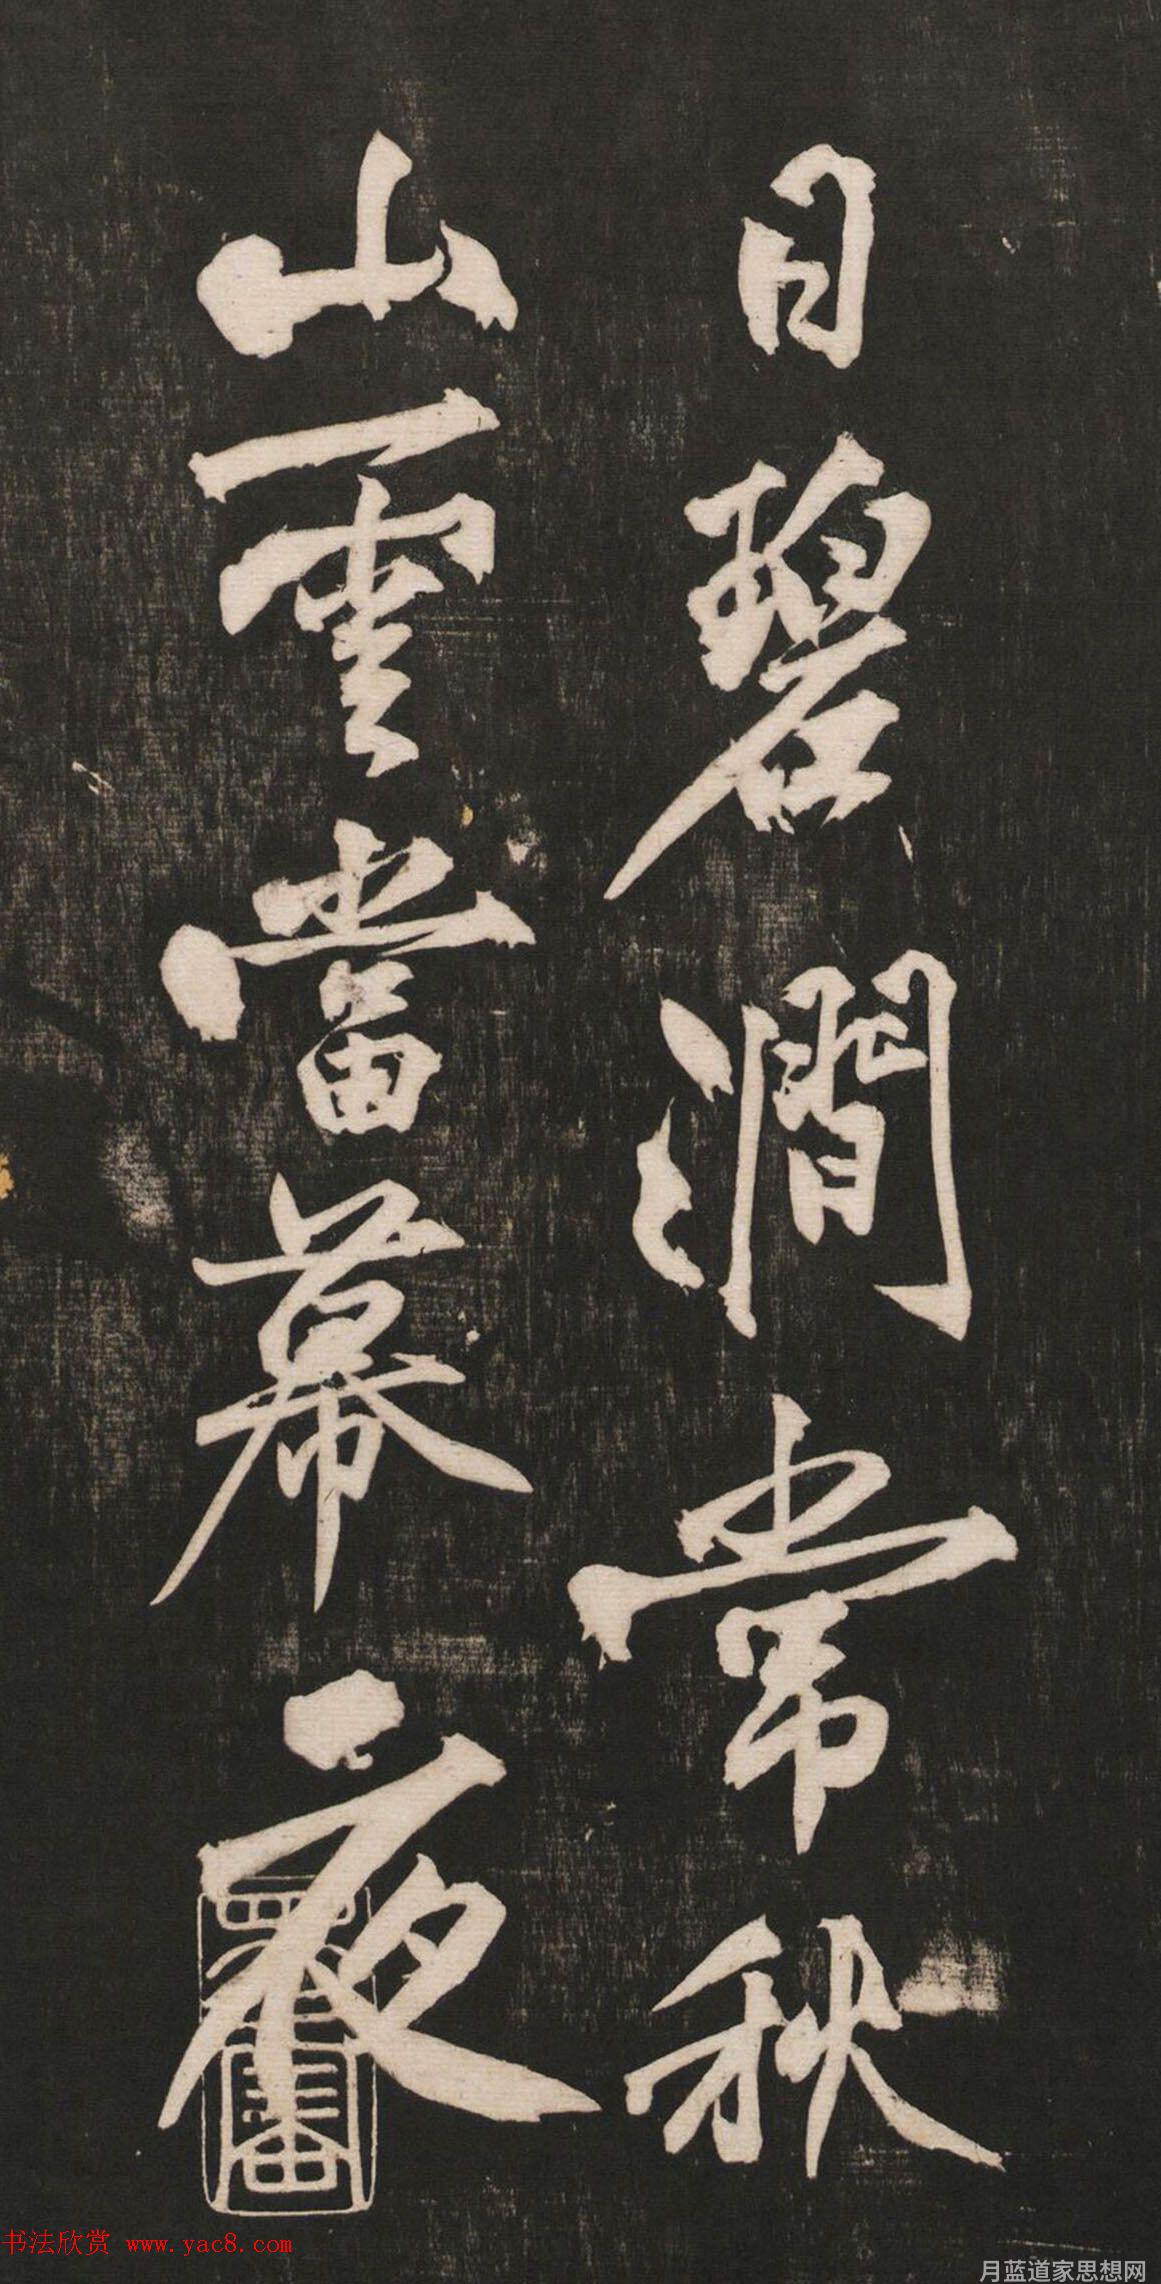 日碧澗常秋
山雲當幕夜
书法欣赏 www.yac8.com
月蓝道家思想网